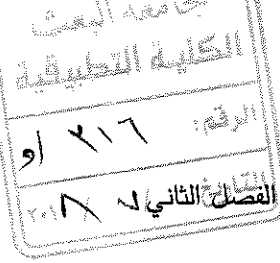 جامعة البعث
الكلية التطبيقية
الرقم: ٢١٦ / و
الفصل الثاني